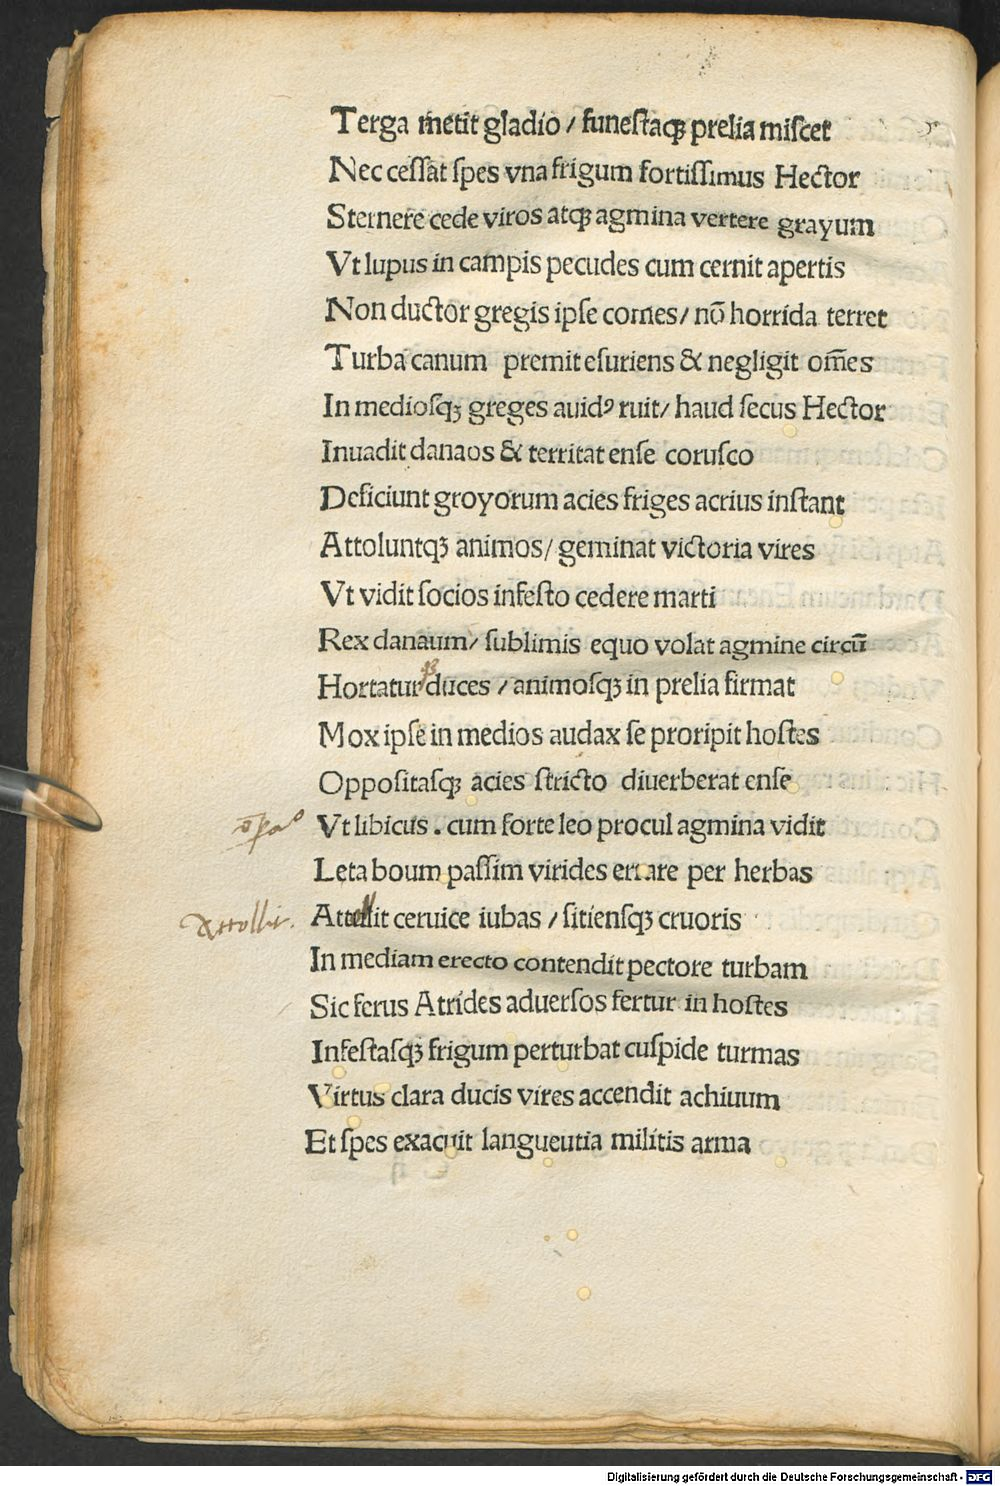 Terga metit gladio / funestaqꝫ prelia miscet
Nec cessat spes vna frigum fortissimus Hector
Sternere cede viros atqꝫ agmina vertere grayum
Vt lupus in campis pecudes cum cernit apertis
Non ductor gregis ipse comes / nō horrida terret
Turba canum premit esuriens & negligit om̄es
In mediosqꝫ greges auidꝰ ruit / haud secus Hector
Inuadit danaos & territat ense corusco
Deficiunt groyorum acies friges acrius instant
Attoluntqꝫ animos / geminat victoria vires
Vt vidit socios infesto cedere marti
Rex danaum / sublimis equo volat agmine circū
Hortatur qꝫ duces / animosqꝫ in prelia firmat
Mox ipse in medios audax se proripit hostes
Oppositasqꝫ acies stricto diuerberat ense
Vt libicus . cum forte leo procul agmina vidit
Leta boum passim virides errare per herbas
Attollit.
Attollit ceruice iubas / sitiensqꝫ cruoris
In mediam erecto contendit pectore turbam
Sic ferus Atrides aduersos fertur in hostes
Infestasqꝫ frigum perturbat cuspide turmas
Virtus clara ducis vires accendit achiuum
Et spes exacuit langueutia militis arma
Digitalisierung gefördert durch die Deutsche Forschungsgemeinschaft - DFG